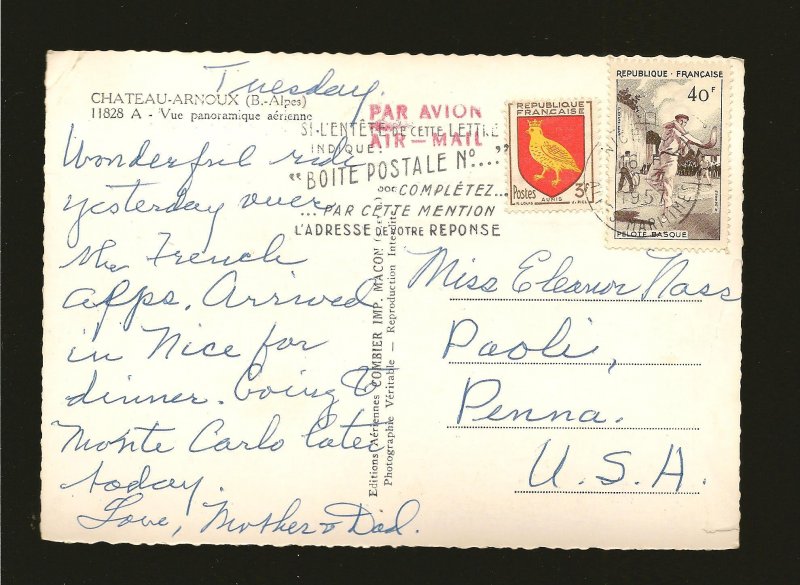 CHATEAU-ARNOUX (B.-Alpes)
11828 A - Vue panoramique aérienne
Tuesday.
Wonderful ride
yesterday over
the French
alps. Arrived
in Nice for
dinner. Going to
Monte Carlo later
today.
Love, Mother & Dad.
PAR AVION
AIR-MAIL
SI L'ENTÊTE DE CETTE LETTRE
INDIQUE:
"BOITE POSTALE No...."
COMPLÉTEZ...
...PAR CETTE MENTION
L'ADRESSE DE VOTRE REPONSE
REPUBLIQUE
FRANÇAISE
3F
Postes
AUNIS
REPUBLIQUE · FRANÇAISE
40F
PELOTE BASQUE
1957
Editions Aériennes COMBIER IMP. MACON
Photographie Véritable - Reproduction Interdite
Miss Eleanor Nass
Paoli,
Penna.
U.S.A.